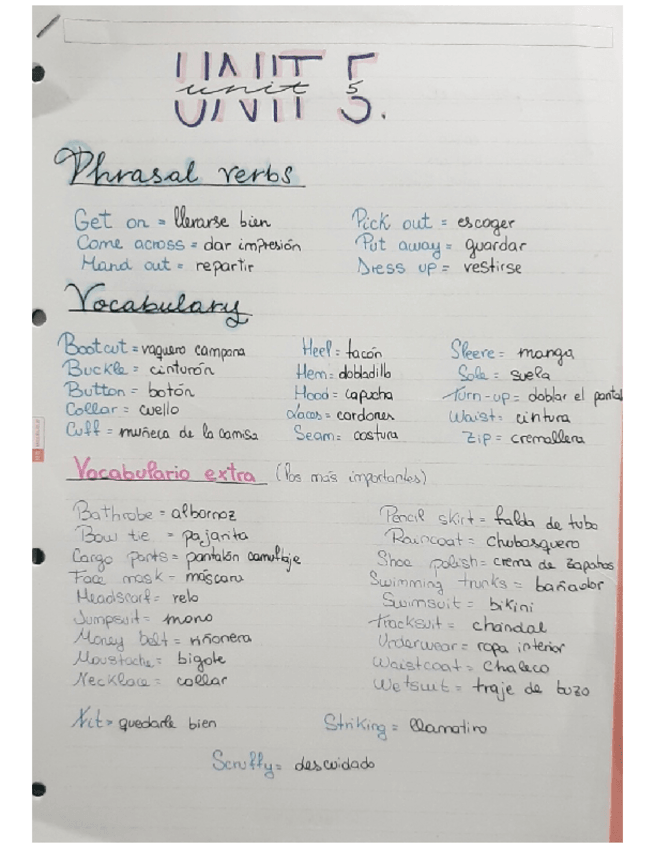 UNIT 5.
unit 5
Phrasal verbs
Get on = llevarse bien
Come across = dar impresión
Hand out = repartir
Pick out = escoger
Put away = guardar
Dress up = vestirse
Vocabulary
Bootcut = vaquero campana
Buckle = cinturón
Button = botón
Collar = cuello
Cuff = muñeca de la camisa
Heel = tacón
Hem = dobladillo
Hood = capucha
Laces = cordones
Seam = costura
Sleeve = manga
Sole = suela
Turn-up = doblar el pantal
Waist = cintura
Zip = cremallera
Vocabulario extra (los más importantes)
Bathrobe = albornoz
Bow tie = pajarita
Cargo pants = pantalón camuflaje
Face mask = máscara
Headscarf = velo
Jumpsuit = mono
Money belt = riñonera
Moustache = bigote
Necklace = collar
Pencil skirt = falda de tubo
Raincoat = chubasquero
Shoe polish = crema de zapatos
Swimming trunks = bañador
Swimsuit = bikini
Tracksuit = chandal
Underwear = ropa interior
Waistcoat = chaleco
Wetsuit = traje de buzo
= quedarle bien
Striking = llamativo
Scruffy = descuidado